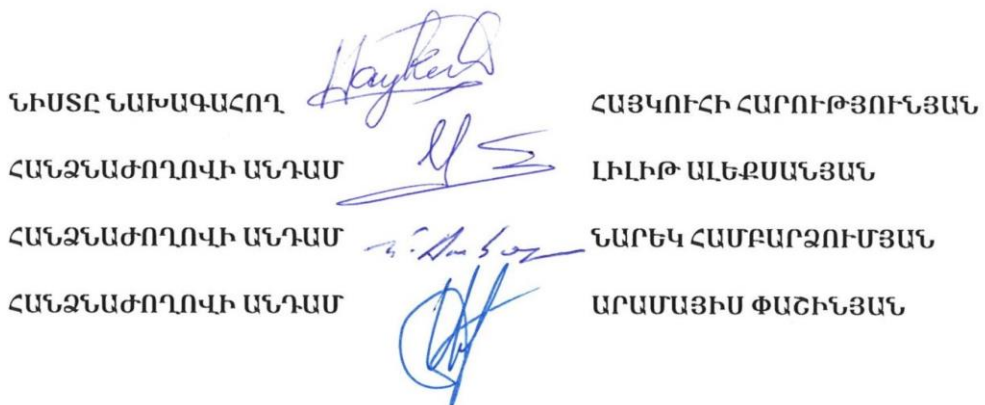 ՆԻՍՏԸ ՆԱԽԱԳԱՀՈՂ ՀԱՅԿՈՒՀԻ ՀԱՐՈՒԹՅՈՒՆՅԱՆ
ՀԱՆՁՆԱԺՈՂՈՎԻ ԱՆԴԱՄ ԼԻԼԻԹ ԱԼԵՔՍԱՆՅԱՆ
ՀԱՆՁՆԱԺՈՂՈՎԻ ԱՆԴԱՄ ՆԱՐԵԿ ՀԱՄԲԱՐՁՈՒՄՅԱՆ
ՀԱՆՁՆԱԺՈՂՈՎԻ ԱՆԴԱՄ ԱՐԱՄԱՅԻՍ ՓԱՇԻՆՅԱՆ